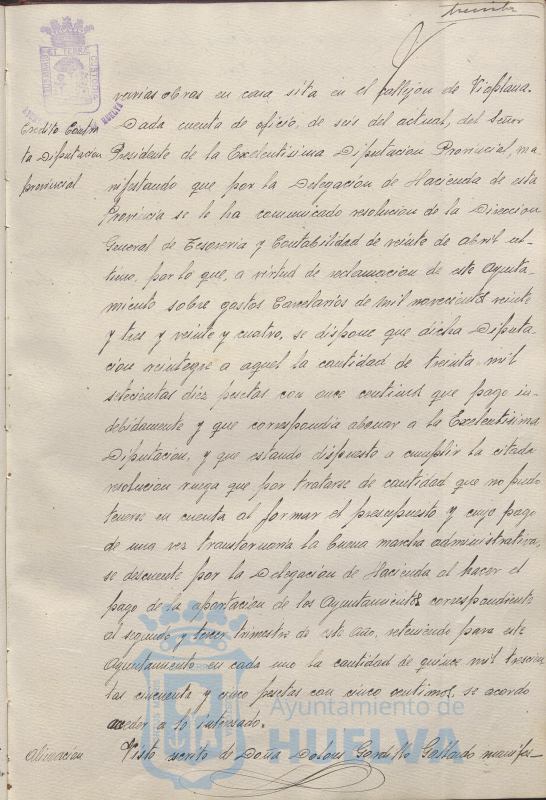 treinta
varias obras en casa sita en el callejon de Vioplana.
Credito Contra
ta Diputacion
provincial
Dada cuenta de oficio, de seis del actual, del Señor
Presidente de la Excelentisima Diputacion Provincial, ma
nifestando que por la Delegacion de Hacienda de esta
Provincia se le ha comunicado resolucion de la Direccion
General de Tesoreria y Contabilidad de veinte de abril ul-
timo, por lo que, a virtud de reclamacion de este Ayunta-
miento sobre gastos Carcelarios de mil novecientos veinte
y tres y veinte y cuatro, se dispone que dicha Diputa-
cion reintegre a aquel la cantidad de treinta mil
setecientas diez pesetas con once centimos que pago in-
debidamente y que correspondia abonar a la Excelentisima
Diputacion, y que estando dispuesto a cumplir la citada
resolucion ruega que por tratarse de cantidad que no pudo
tenerse en cuenta al formar el presupuesto y cuyo pago
de una vez transtornaria la buena marcha administrativa,
se descuente por la Delegacion de Hacienda al hacer el
pago de la aportacion de los Ayuntamientos correspondiente
al segundo y tercer trimestre de este año, reteniendo para este
Ayuntamiento en cada uno la cantidad de quince mil trescien
tas cincuenta y cinco pesetas con cinco centimos, se acordo
acceder a lo interesado.
Alineacion
Visto escrito de Doña Dolores Gordillo Gallardo manifes-
Ayuntamiento de
HUELVA